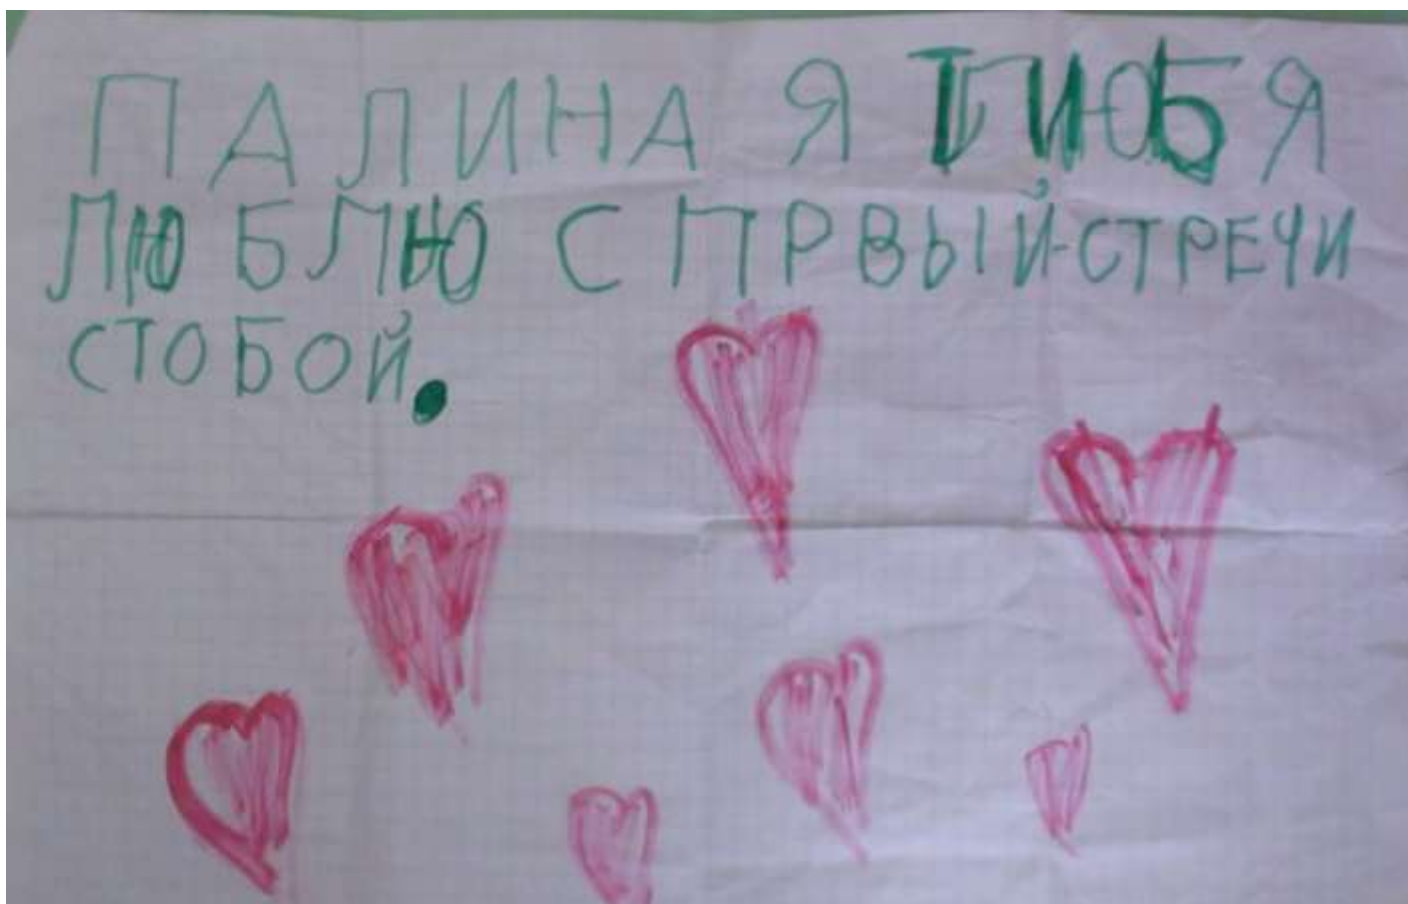 ПАЛИНА Я ТИБЯ
ЛЮБЛЮ С ПРВЫЙ СТРЕЧИ
СТОБОЙ.